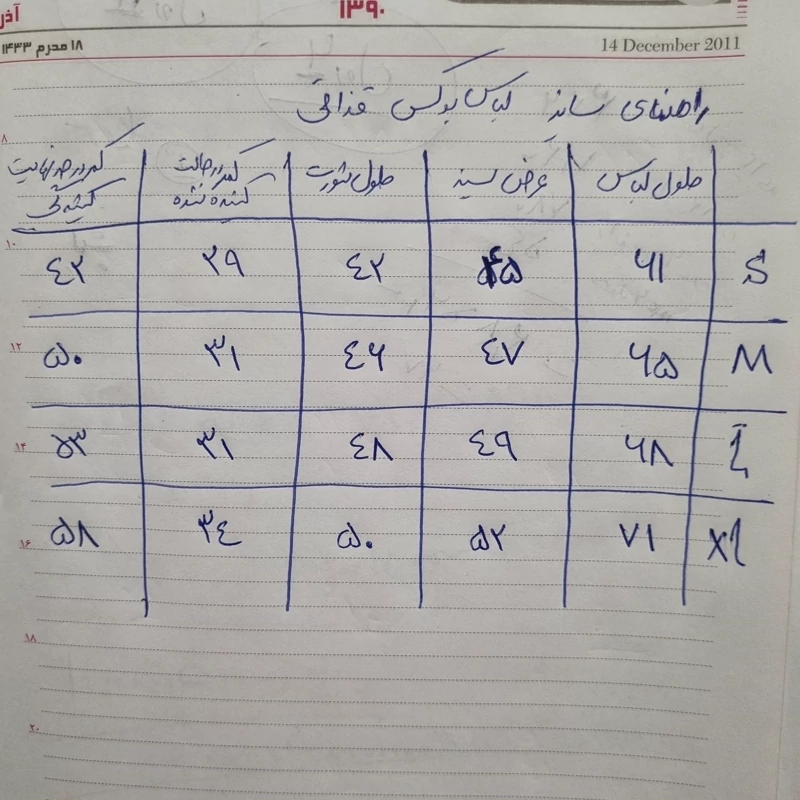 آذر ۱۳۹۰
۱۸ محرم ۱۴۳۳ 14 December 2011
راهنمای سایز لباس بوکس قذافی
طول لباس عرض سینه طول شورت کمر در حالت کشیده نشده کمر در حد نهایت کشیدگی
S ۶۱ ۴۵ ٤۲ ۲۹ ٤۲
M ۶۵ ٤۷ ٤۶ ۳۱ ۵۰
L ۶۸ ٤۹ ٤۸ ۳۱ ۵۳
XL ۷۱ ۵۲ ۵۰ ۳٤ ۵۸
۸
۱۰
۱۲
۱۴
۱۶
۱۸
۲۰